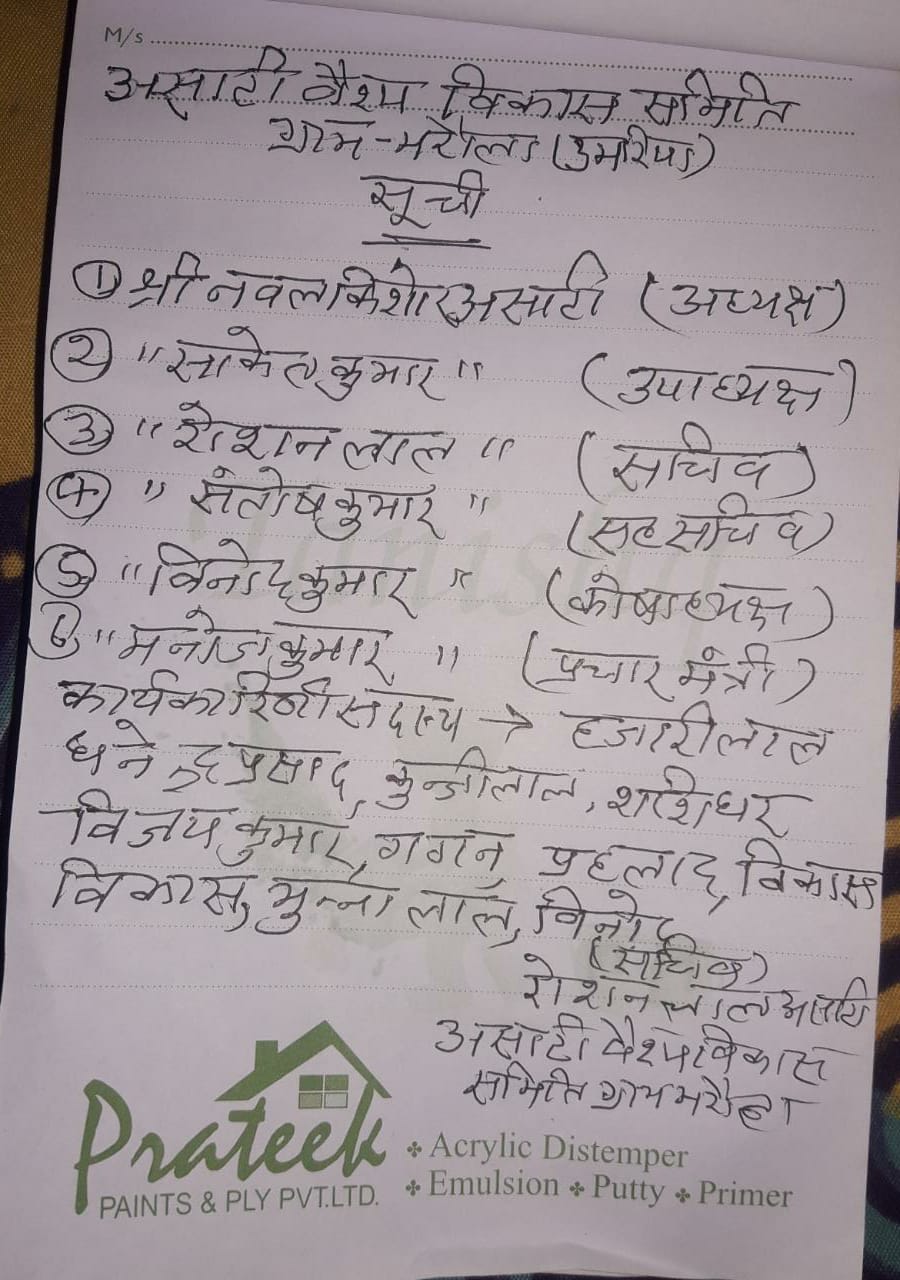 M/s
असाटी वैश्य विकास समिति
ग्राम-मरौला (उमरिया)
सूची
① श्री नवलकिशोर असाटी (अध्यक्ष)
② " साकेत कुमार " (उपाध्यक्ष)
③ " रोशन लाल " (सचिव)
④ " संतोष कुमार " (सह सचिव)
⑤ " विनोद कुमार " (कोषाध्यक्ष)
६ " मनोज कुमार " (प्रचार मंत्री)
कार्यकारिणी सदस्य → हजारीलाल
धनेन्द्र प्रसाद, कुन्जीलाल, शशिधर
विजय कुमार, गगन, प्रहलाद, विकास
विकास, मुन्ना लाल, विनोद
(सचिव)
रोशन लाल असाटी
असाटी वैश्य विकास
समिति ग्राम
Prateek
PAINTS & PLY PVT.LTD.
Acrylic Distemper
Emulsion Putty Primer